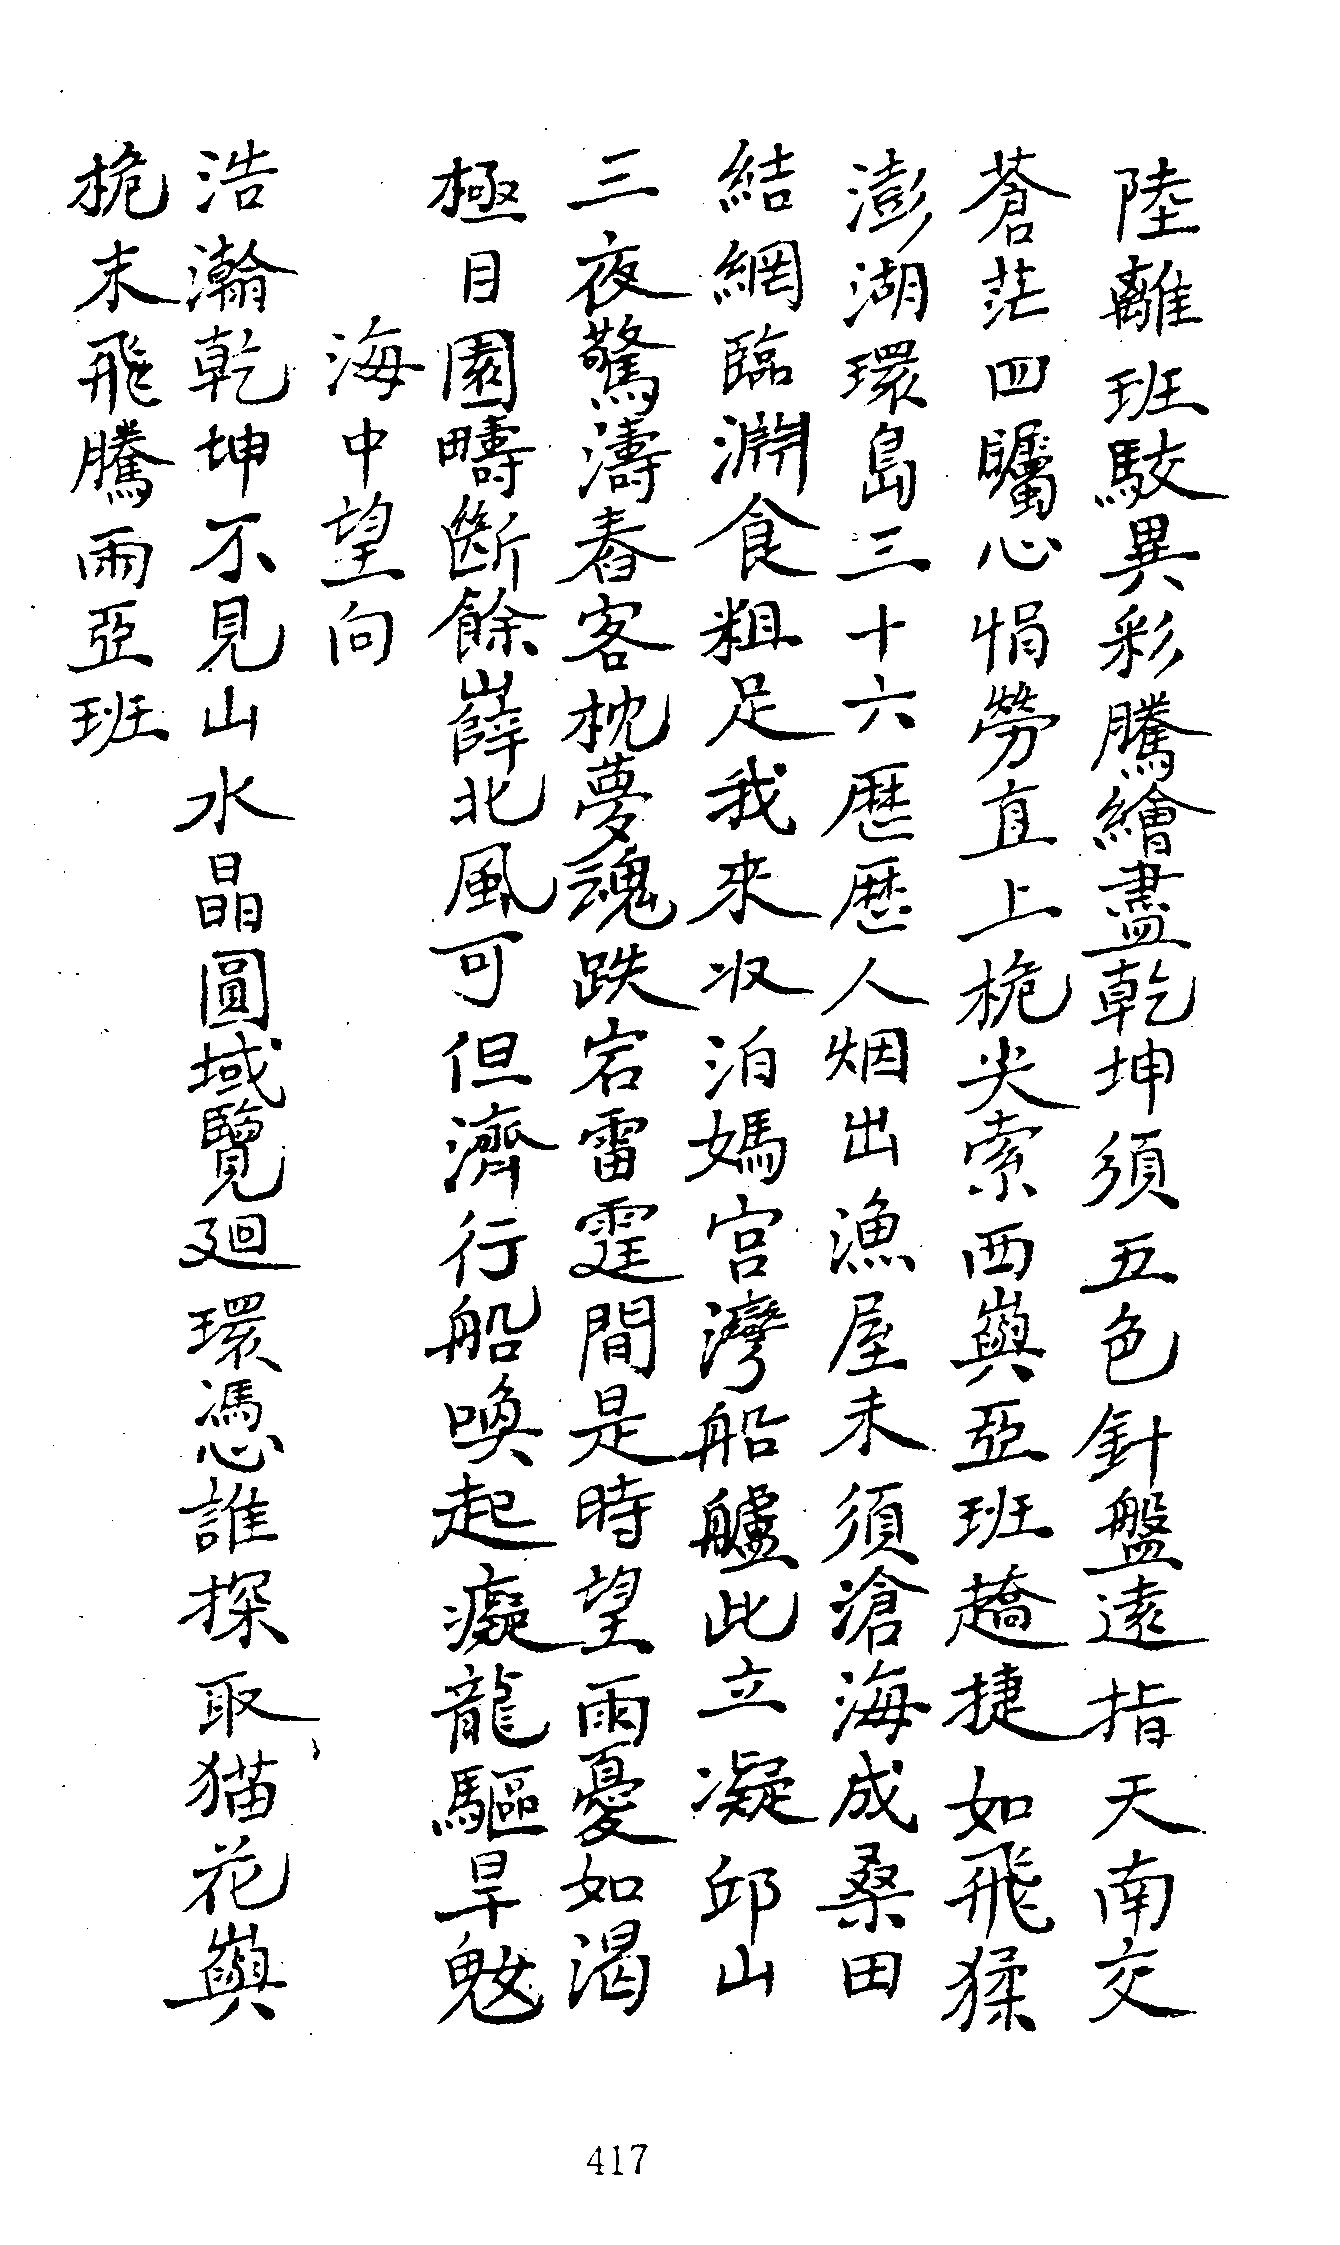 陸離班駮異彩騰繪盡乾坤須五色針盤遠指天南交
蒼茫四矚心悁勞直上桅尖索西嶼亞班趫捷如飛猱
澎湖環島三十六歷歷人烟出漁屋未須滄海成桑田
結網臨淵食粗足我來收泊媽宮灣船艫此立凝邱山
三夜驚濤舂客枕夢魂跌宕雷霆間是時望雨憂如渴
極目園疇斷餘㠔北風可但濟行船喚起癡龍驅旱魃
海中望向
浩瀚乾坤不見山水晶圓域覽廻環憑誰探取猫花嶼
桅末飛騰雨亞班
417